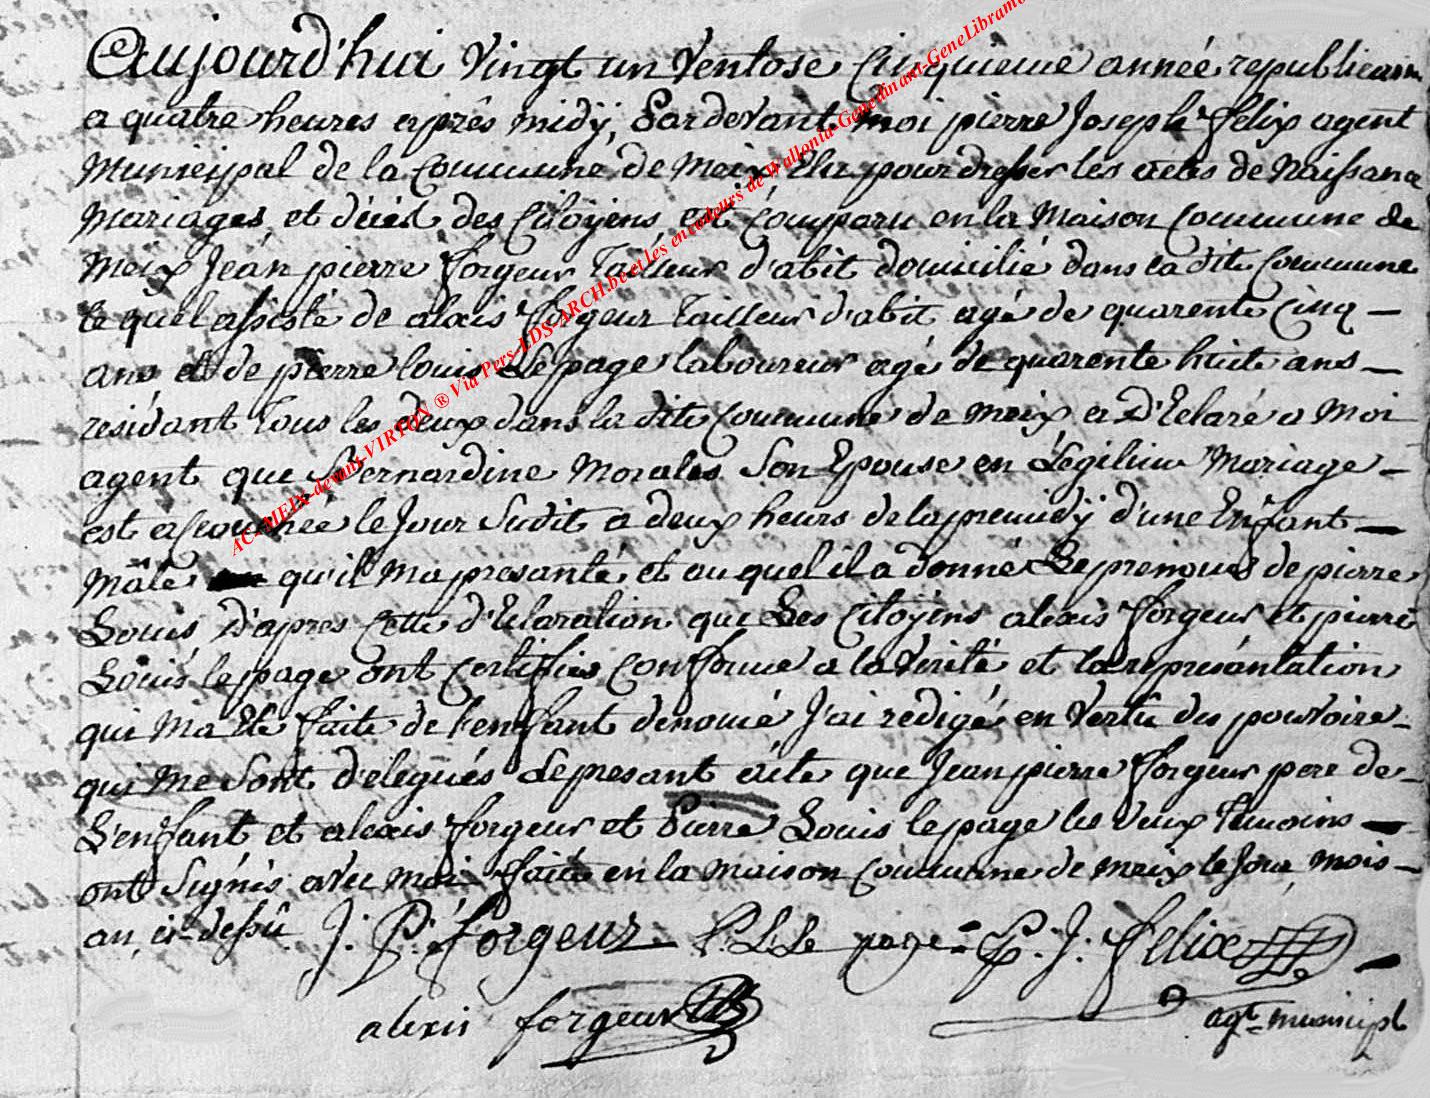 Aujourd'hui Vingt un Ventose Cinquieme année republicain
a quatre heures après midÿ, Pardevant moi pierre Joseph felix agent
Municipal de la Commune de Meix Elu pour dresser les actes de Naissance
Mariages et décés des Citoÿens, est Comparu en la Maison Commune de
Meix Jean pierre forgeur Tailleur d'abit domicilié dans la dite Commune
le quel assisté de alexis forgeur Tailleur d'abit agé de quarente Cinq —
ans et de pierre louis Lepage laboureur agé de quarente huit ans —
residant Tous les deux dans la dite Commune de Meix a D'Eclaré a Moi
agent que Bernardine Morales Son Epouse en Légitime Mariage —
est acouchée le Jour Sudit a deux heurs de lapremidÿ d'une Enfant —
Mâle qu'il ma presanté et au quel il a donné Le prenoms de pierre
Louis D'apres Cette d'Eclaration que Les Citoÿens alexis forgeur et pierre
Louis lepage ont Certifies Conforme a la Verité et la représantation
qui Ma Eté faite de l'enfant denomé J'ai redigé en Vertu des pouvoire —
qui me Sont D'élegués Le presant acte que Jean pierre forgeur pere de —
L'enfant et alexis forgeur et Pierre Louis lepage les deux Temoins —
ont Signés avec moi fait en la Maison Commune de Meix le Jour Mois —
an, ci-dessû J. P. forgeur P. L. Le page = P. J. felix
alexis forgeur agt municipl
AC-MEIX-devant-VIRTON ® Via Pers-LDS-ARCH.be et les encodeurs de Wallonia-Genedinant-GeneLibramo